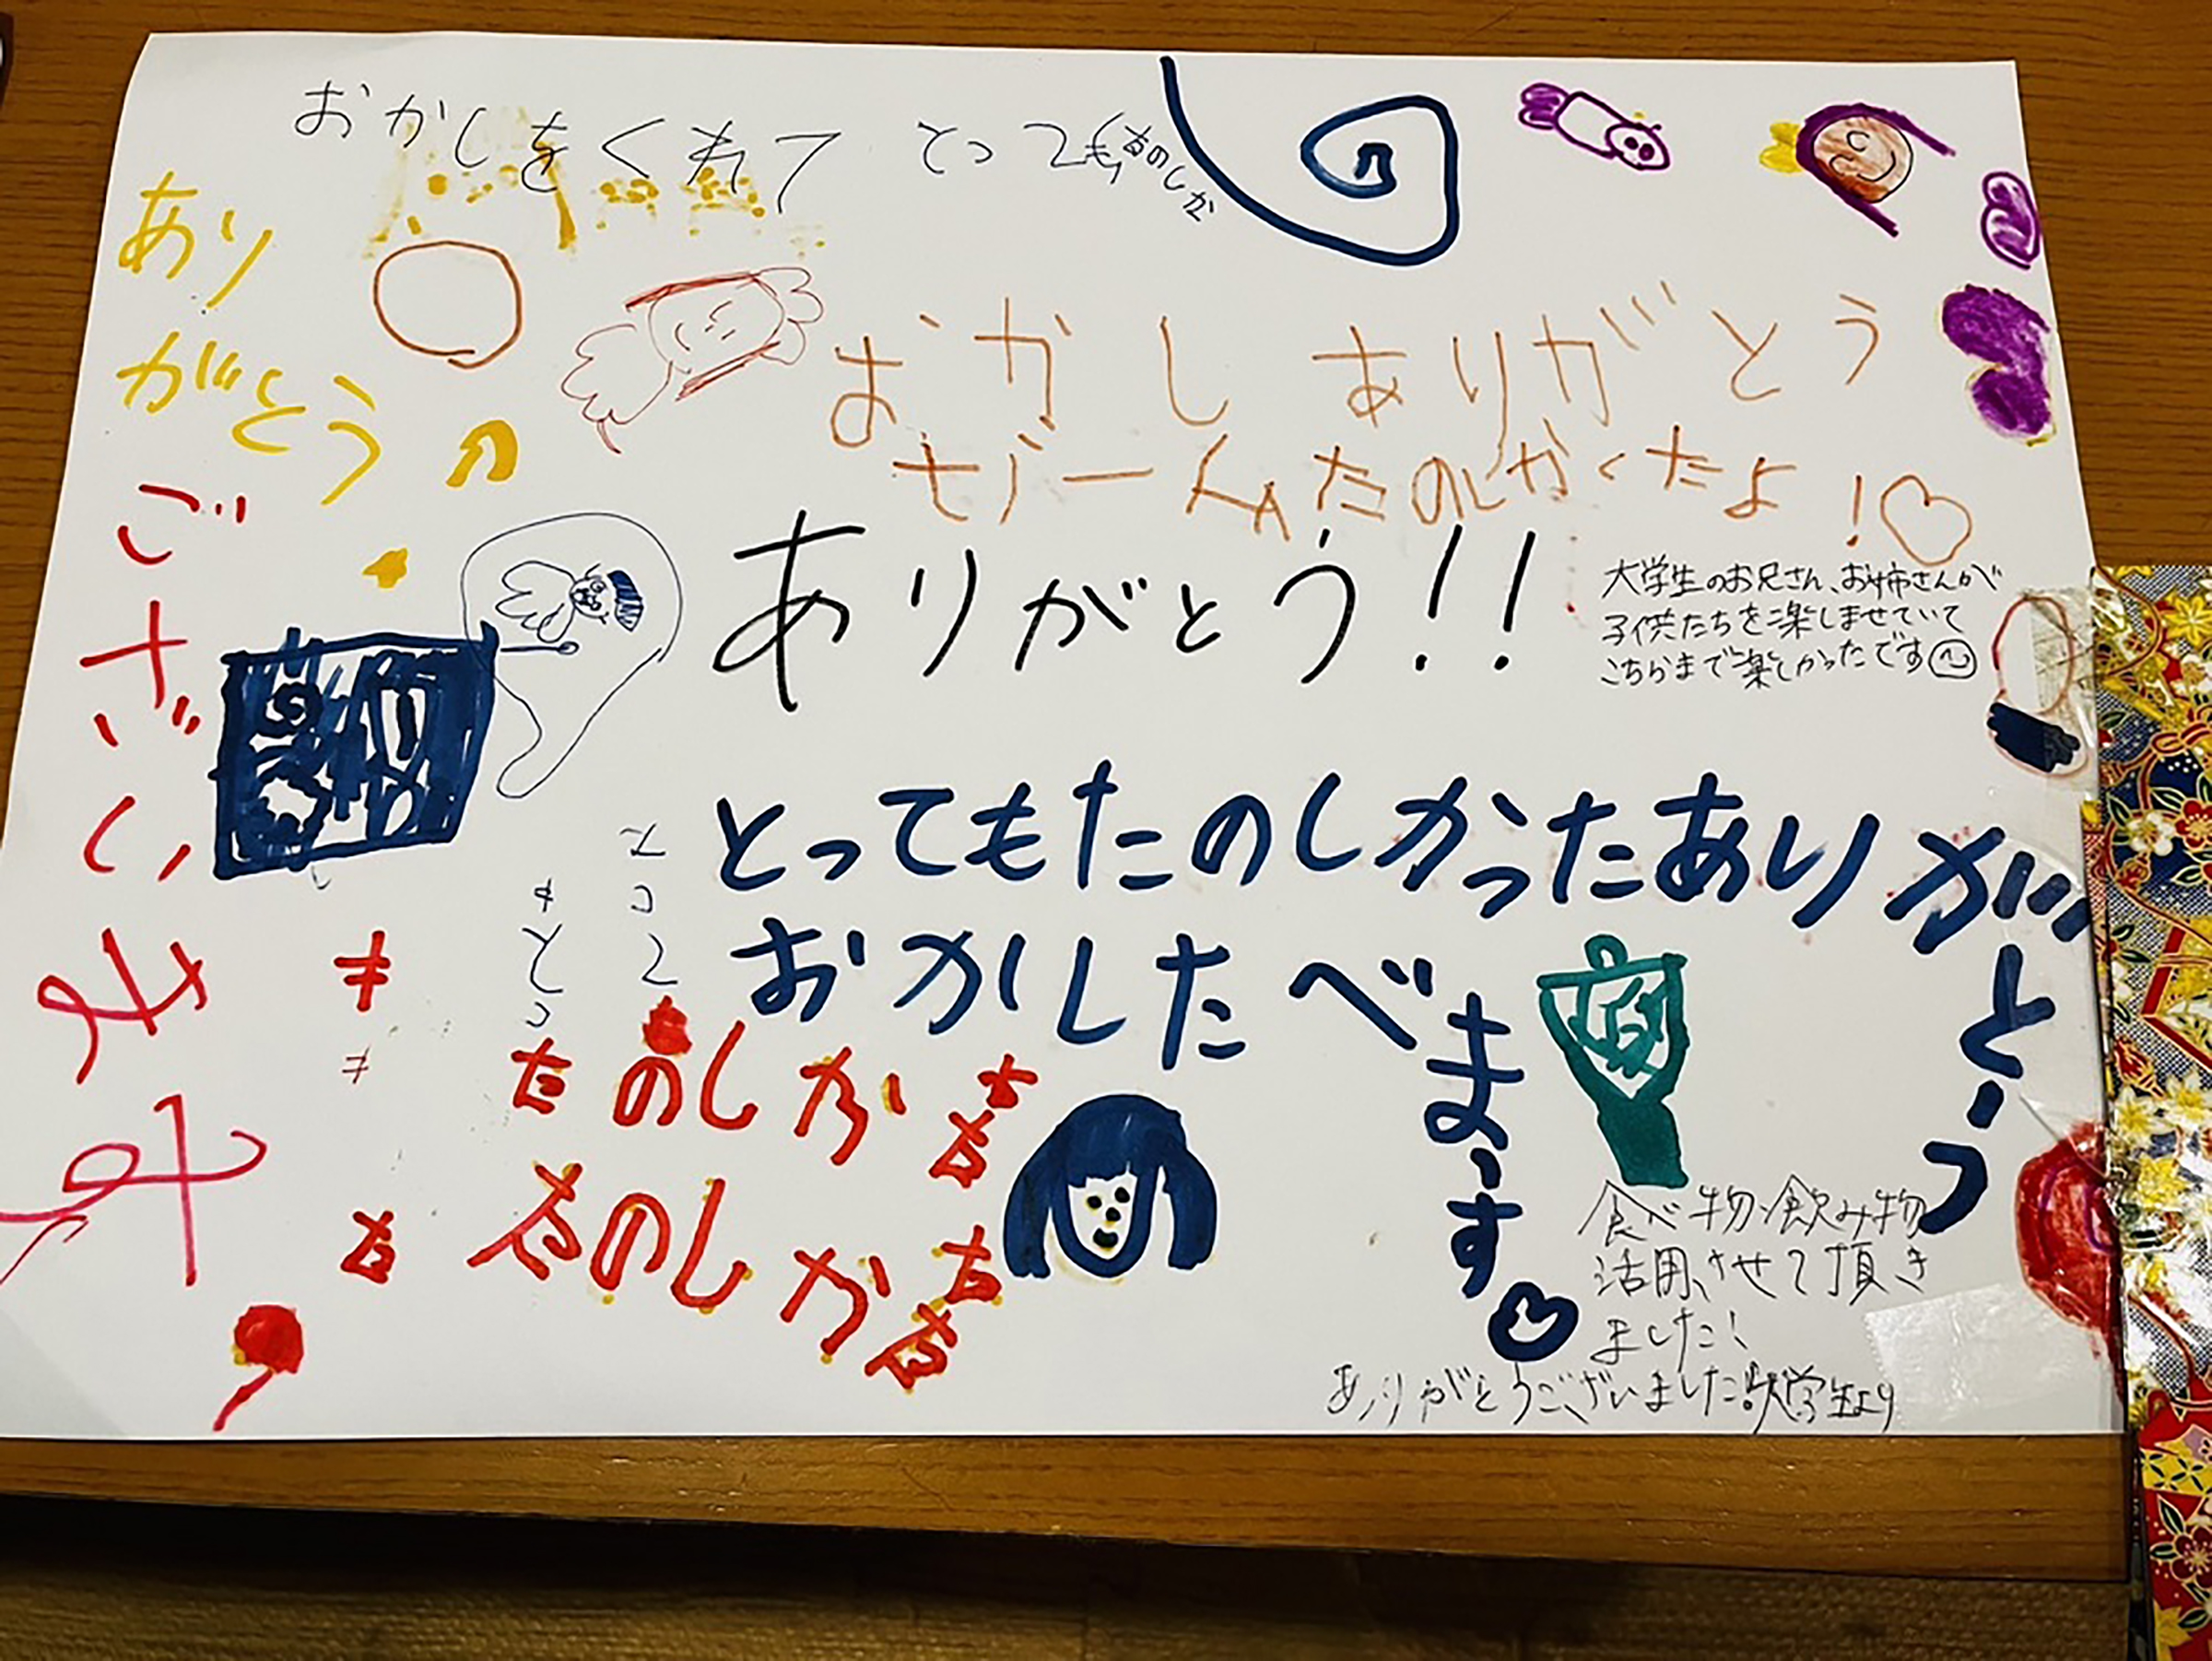 おかしをくれて とっても
たのしか
ありがとう
ございます
おかしありがとう
ぜーんぶたのしかったよ!
ありがとう!!
大学生のお兄さん、お姉さんが
子供たちを楽しませていて
こちらまで楽しかったです
とってもたのしかったありがとう
おかしたべます
たのしか
たのしか
食べ物・飲み物
活用させて頂き
ました!
ありがとうございました!!大学生より